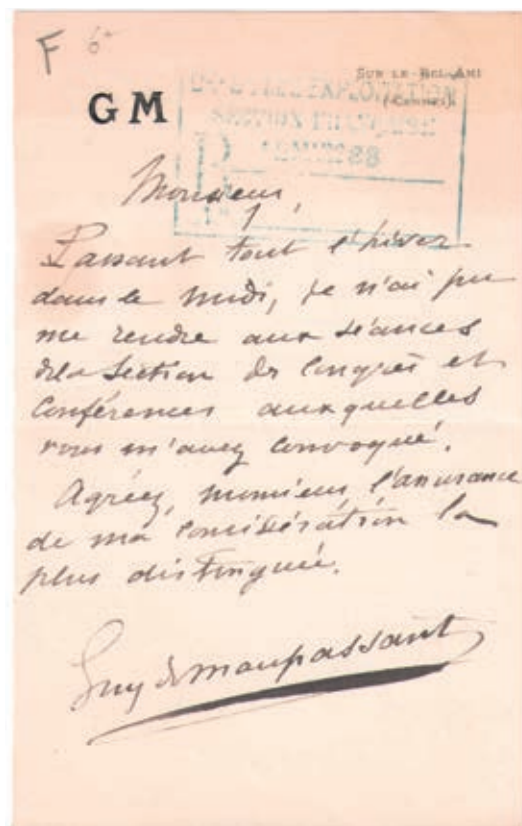 F
SUR LE BEL-AMI
(CANNES)
G M
SECTION FRANÇAISE
Monsieur,
Passant tout l'hiver
dans le midi, je n'ai pu
me rendre aux séances
de la Section des Congrès et
Conférences auxquelles
vous m'avez convoqué.
Agréez, monsieur, l'assurance
de ma considération la
plus distinguée.
Guy de Maupassant